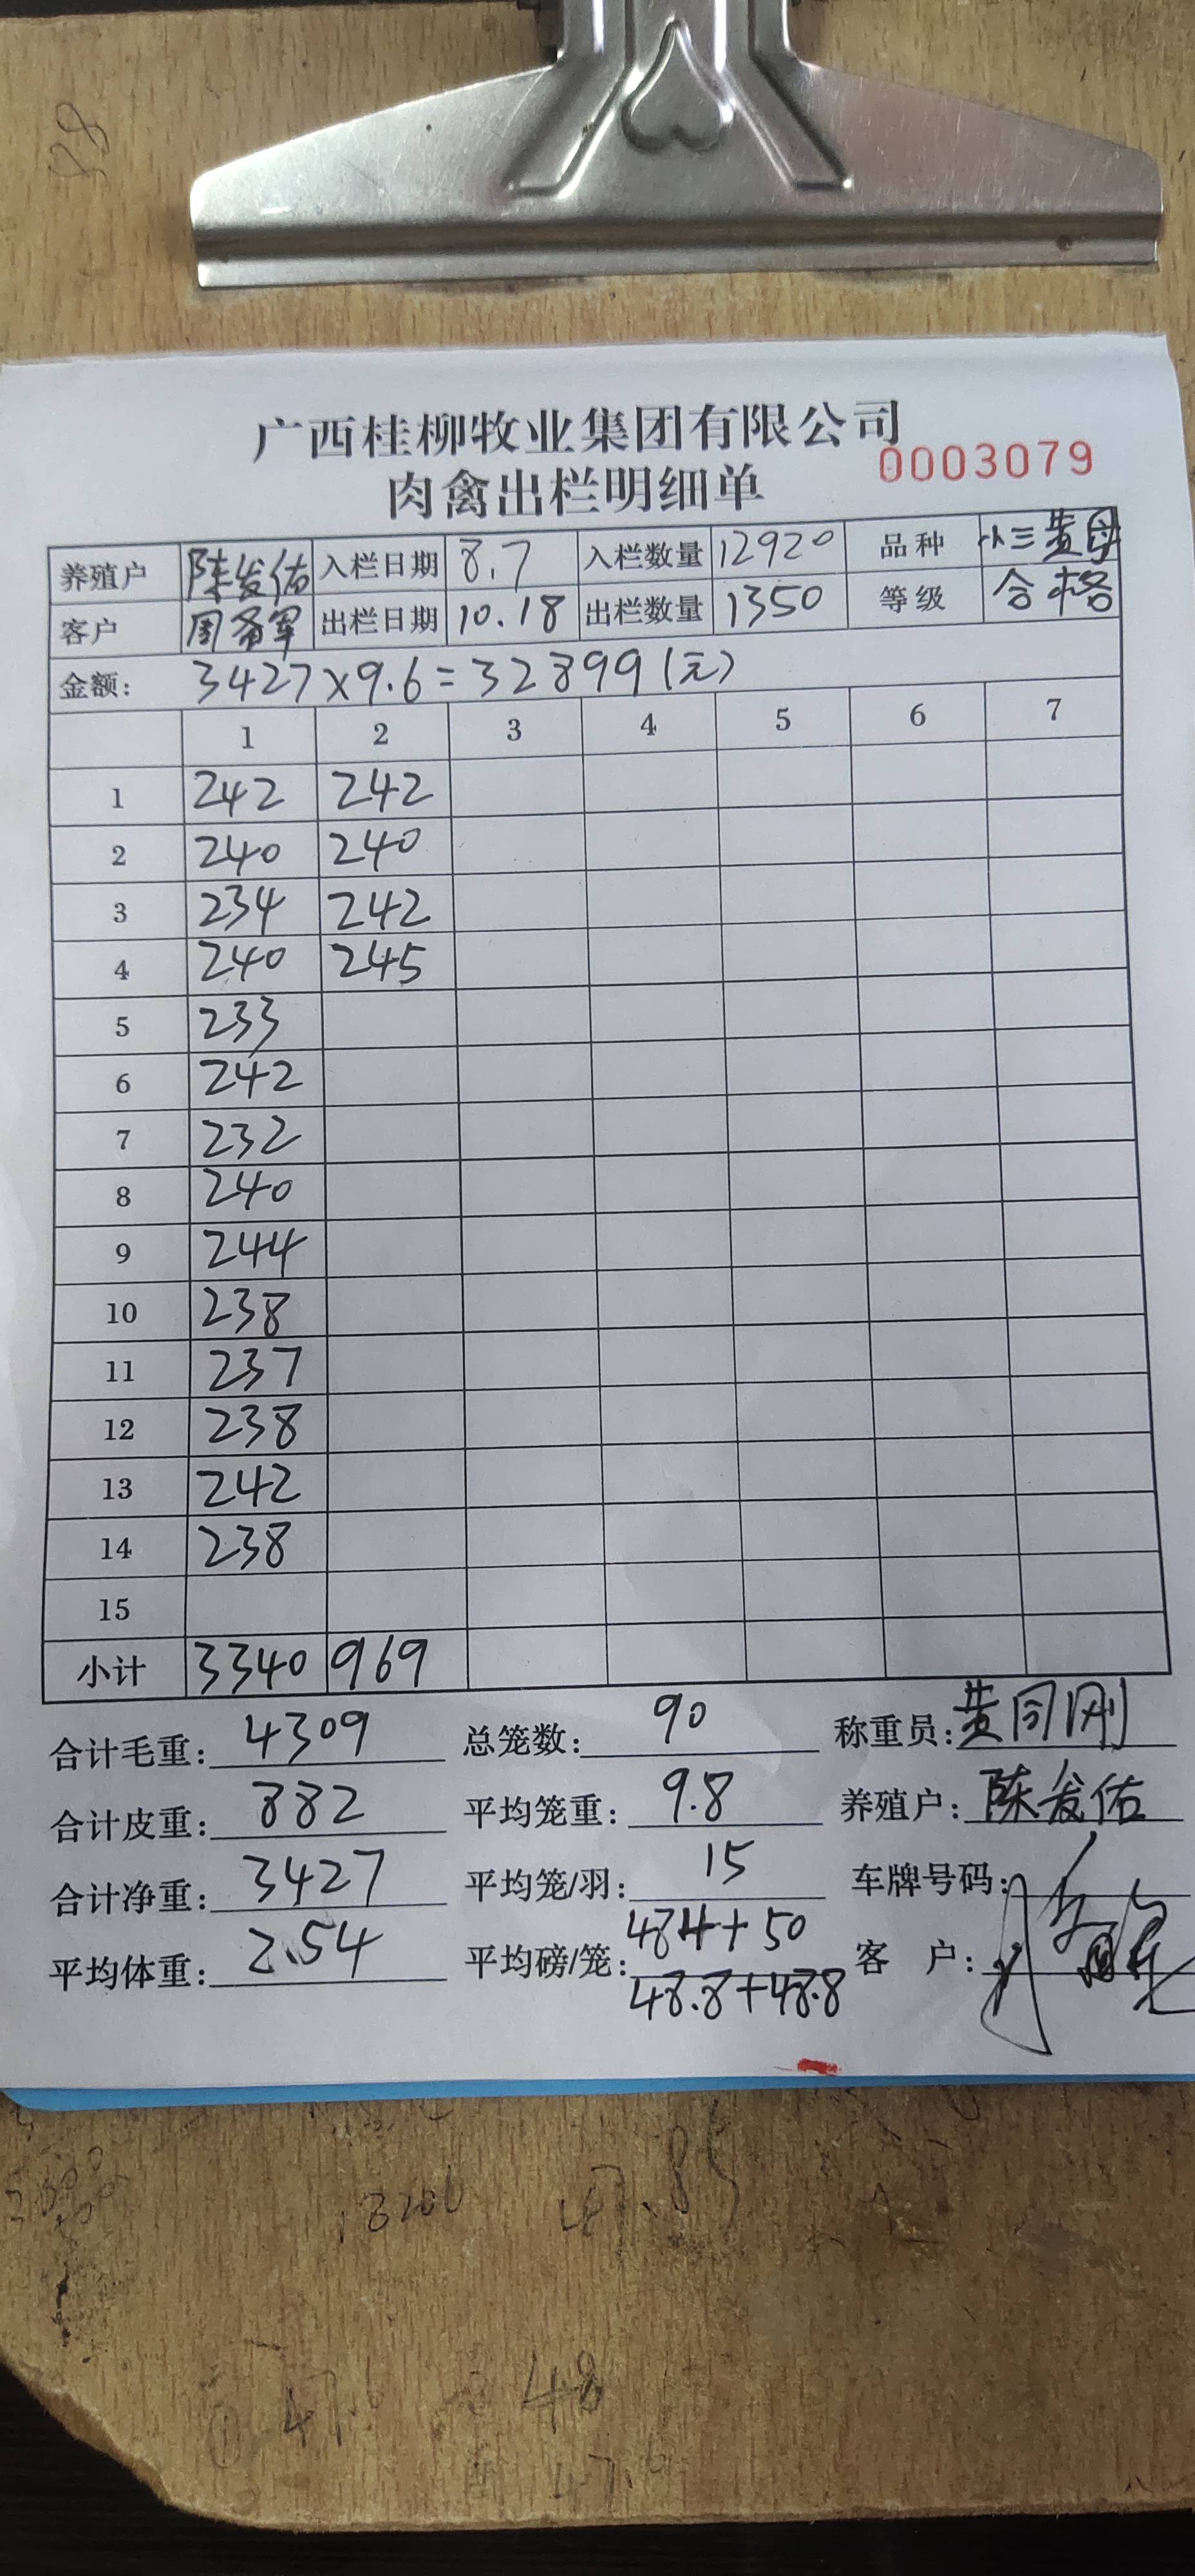 广西桂柳牧业集团有限公司
肉禽出栏明细单 0003079
养殖户 陈发佑 入栏日期 8.7 入栏数量 12920 品种 小三黄母
客户 出栏日期 10.18 出栏数量 1350 等级 合格
金额: 3427×9.6=32899(元)
1 2 3 4 5 6 7
1 242 242
2 240 240
3 234 242
4 240 245
5 233
6 242
7 232
8 240
9 244
10 238
11 237
12 238
13 242
14 238
15
小计 3340 969
合计毛重: 4309 总笼数: 90 称重员: 黄同刚
合计皮重: 882 平均笼重: 9.8 养殖户: 陈发佑
合计净重: 3427 平均笼/羽: 15 车牌号码:
平均体重: 2.54 平均磅/笼: 484+50 客 户:
48.8+48.8
47.85
48